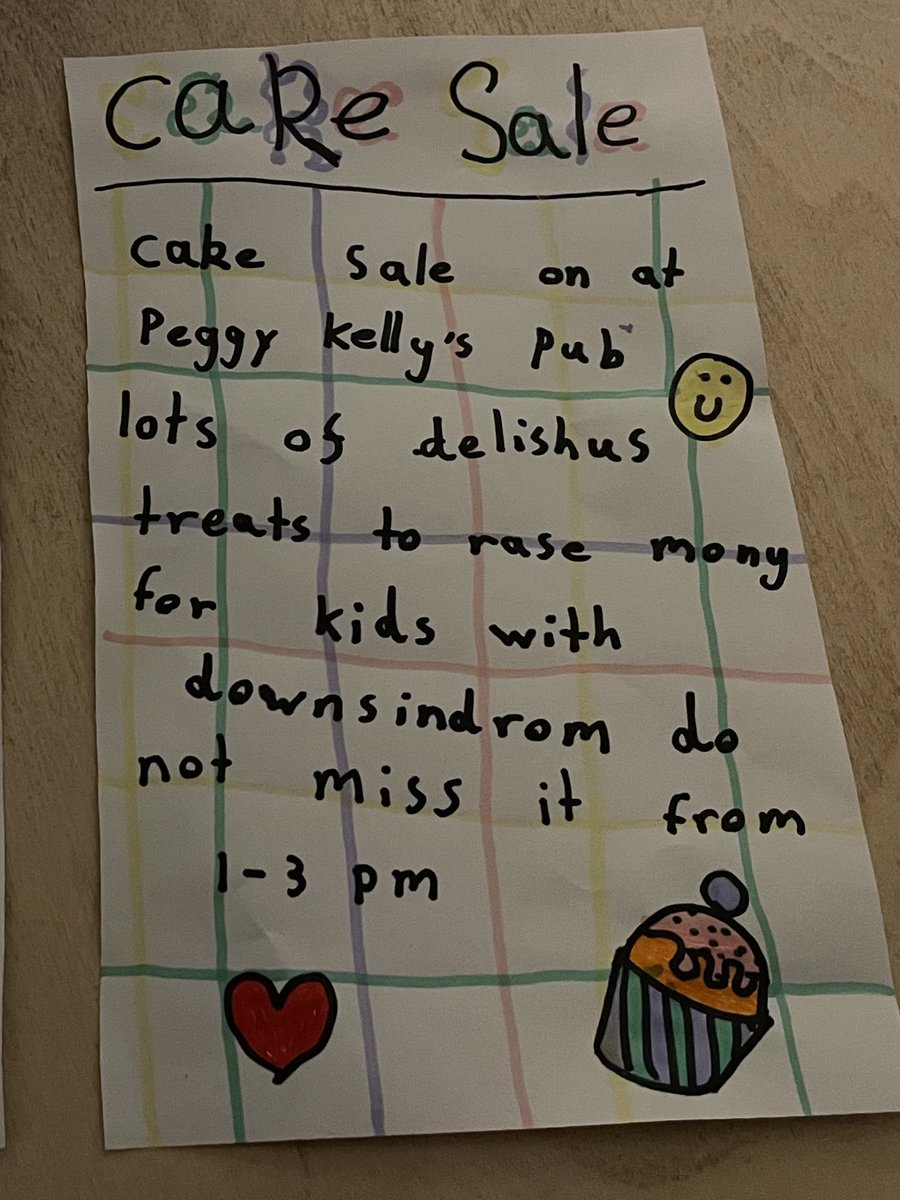 Cake Sale
cake Sale on at
Peggy Kelly's Pub
lots of delishus
treats to rase mony
for kids with
downsindrom do
not miss it from
1-3 pm